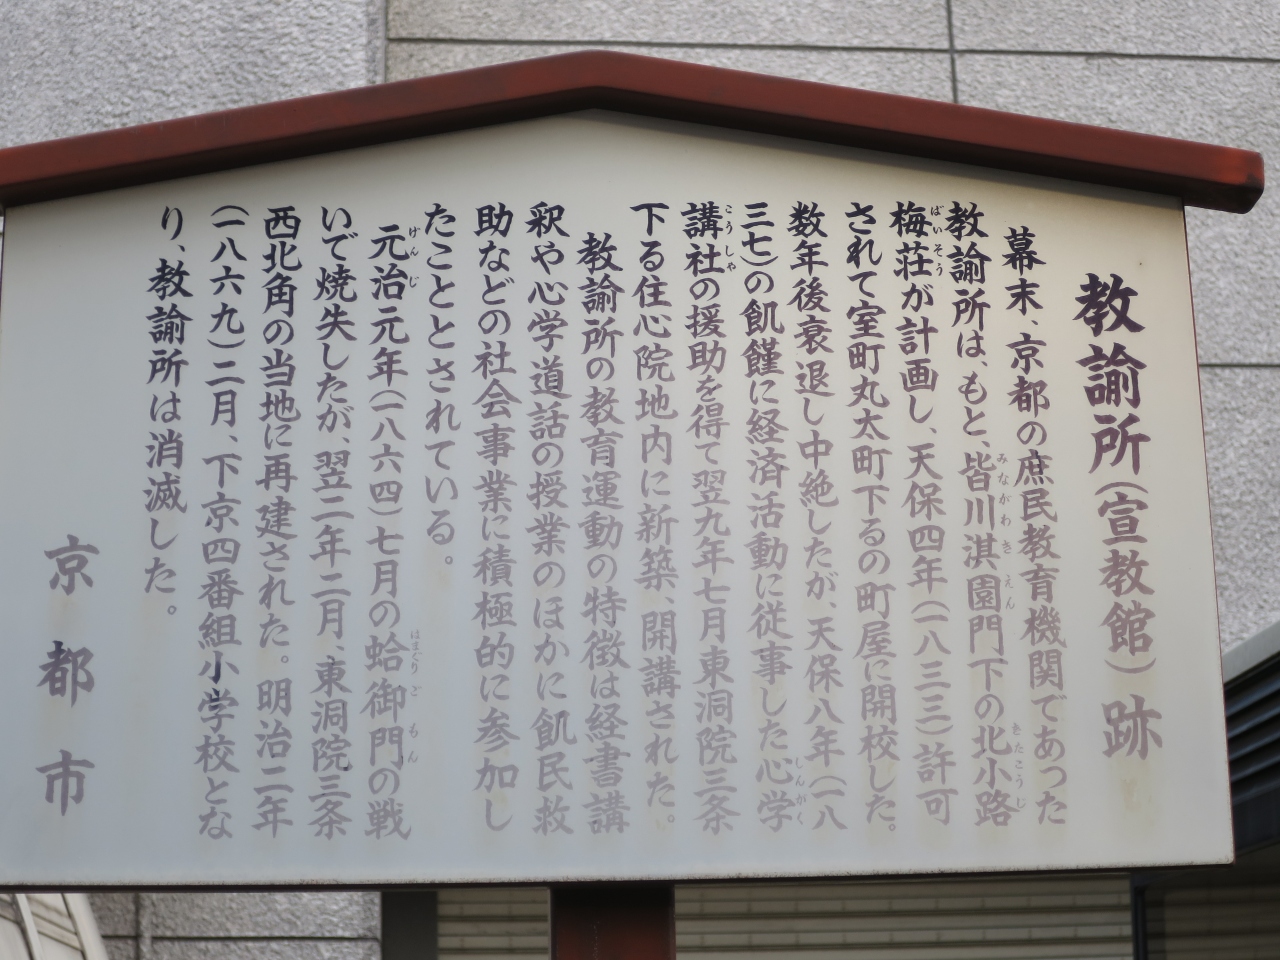 教諭所(宣教館)跡
幕末、京都の庶民教育機関であった
教諭所は、もと、皆川淇園門下の北小路
梅荘が計画し、天保四年(一八三三)許可
されて室町丸太町下るの町屋に開校した。
数年後衰退し中絶したが、天保八年(一八
三七)の飢饉に経済活動に従事した心学
講社の援助を得て翌九年七月東洞院三条
下る住心院地内に新築、開講された。
教諭所の教育運動の特徴は経書講
釈や心学道話の授業のほかに飢民救
助などの社会事業に積極的に参加し
たこととされている。
元治元年(一八六四)七月の蛤御門の戦
いで焼失したが、翌二年二月、東洞院三条
西北角の当地に再建された。明治二年
(一八六九)二月、下京四番組小学校とな
り、教諭所は消滅した。
京都市